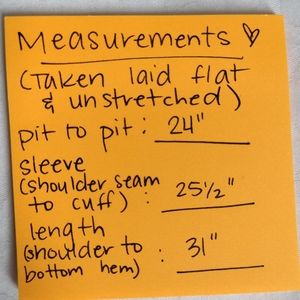 Measurements ♡
(Taken laid flat
& unstretched)
pit to pit: 24"
sleeve
(shoulder seam
to cuff): 25½"
length
(shoulder to
bottom hem): 31"